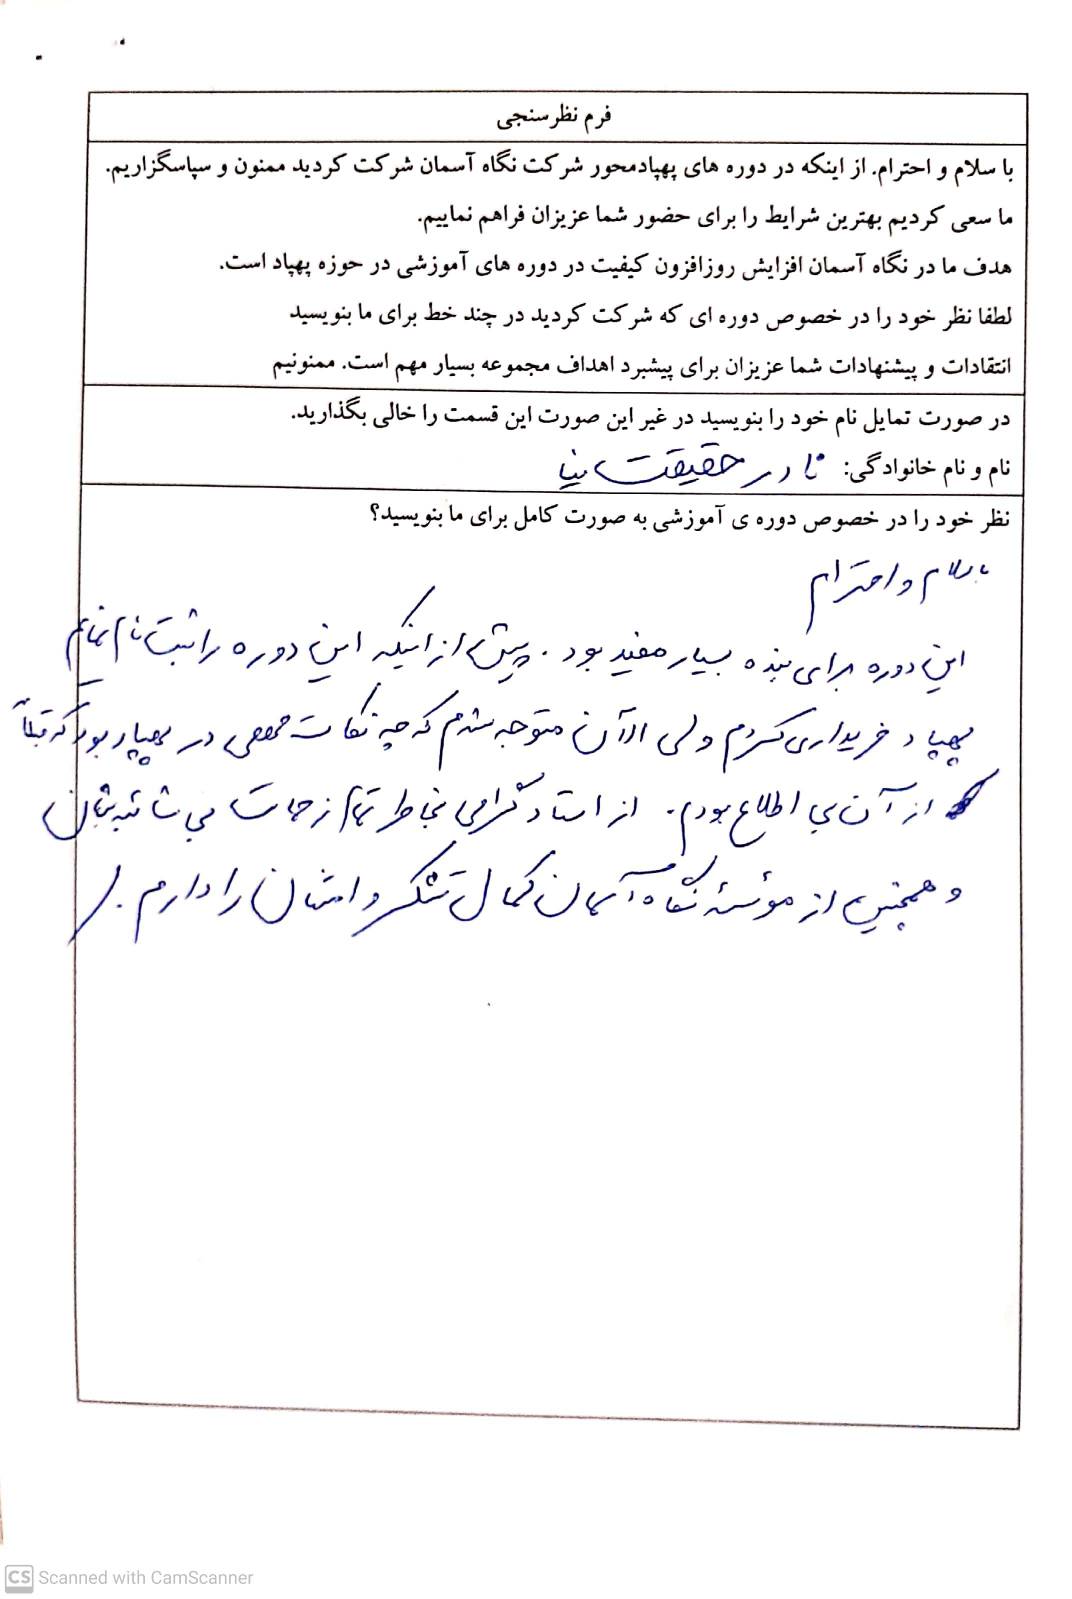 فرم نظرسنجی
با سلام و احترام. از اینکه در دوره های پهپادمحور شرکت نگاه آسمان شرکت کردید ممنون و سپاسگزاریم.
ما سعی کردیم بهترین شرایط را برای حضور شما عزیزان فراهم نماییم.
هدف ما در نگاه آسمان افزایش روزافزون کیفیت در دوره های آموزشی در حوزه پهپاد است.
لطفا نظر خود را در خصوص دوره ای که شرکت کردید در چند خط برای ما بنویسید
انتقادات و پیشنهادات شما عزیزان برای پیشبرد اهداف مجموعه بسیار مهم است. ممنونیم
در صورت تمایل نام خود را بنویسید در غیر این صورت این قسمت را خالی بگذارید.
نام و نام خانوادگی: نادر حقیقت نیا
نظر خود را در خصوص دوره ی آموزشی به صورت کامل برای ما بنویسید؟
باسلام و احترام
این دوره برای بنده بسیار مفید بود. پیش از اینکه این دوره را ثبت نام نمایم
پهپاد خریداری کردم ولی از آن متوجه شدم که چه نکات مهمی در پهپاد بود که قبلاً
از آن بی اطلاع بودم. از استاد گرامی بخاطر تمام زحمات بی شائبه شان
و همچنین از مؤسسهٔ نگاه آسمان کمال تشکر و امتنان را دارم.
CS Scanned with CamScanner